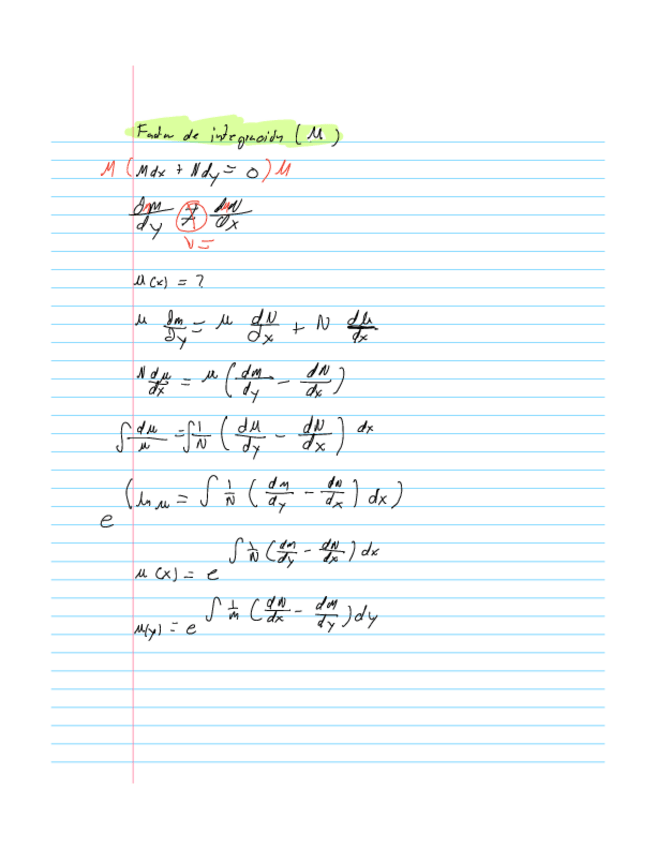 Factor de integración (μ)
μ (Mdx + Ndy = 0) μ
dμM/dy ≠ dμN/dx
v =
μ(x) = ?
μ dm/dy = μ dN/dx + N dμ/dx
N dμ/dx = μ (dm/dy - dN/dx)
∫ dμ/μ = ∫ 1/N (dM/dy - dN/dx) dx
e^(ln μ = ∫ 1/N (dm/dy - dN/dx) dx)
μ(x) = e^∫ 1/N (dm/dy - dN/dx) dx
μ(y) = e^∫ 1/m (dN/dx - dm/dy) dy